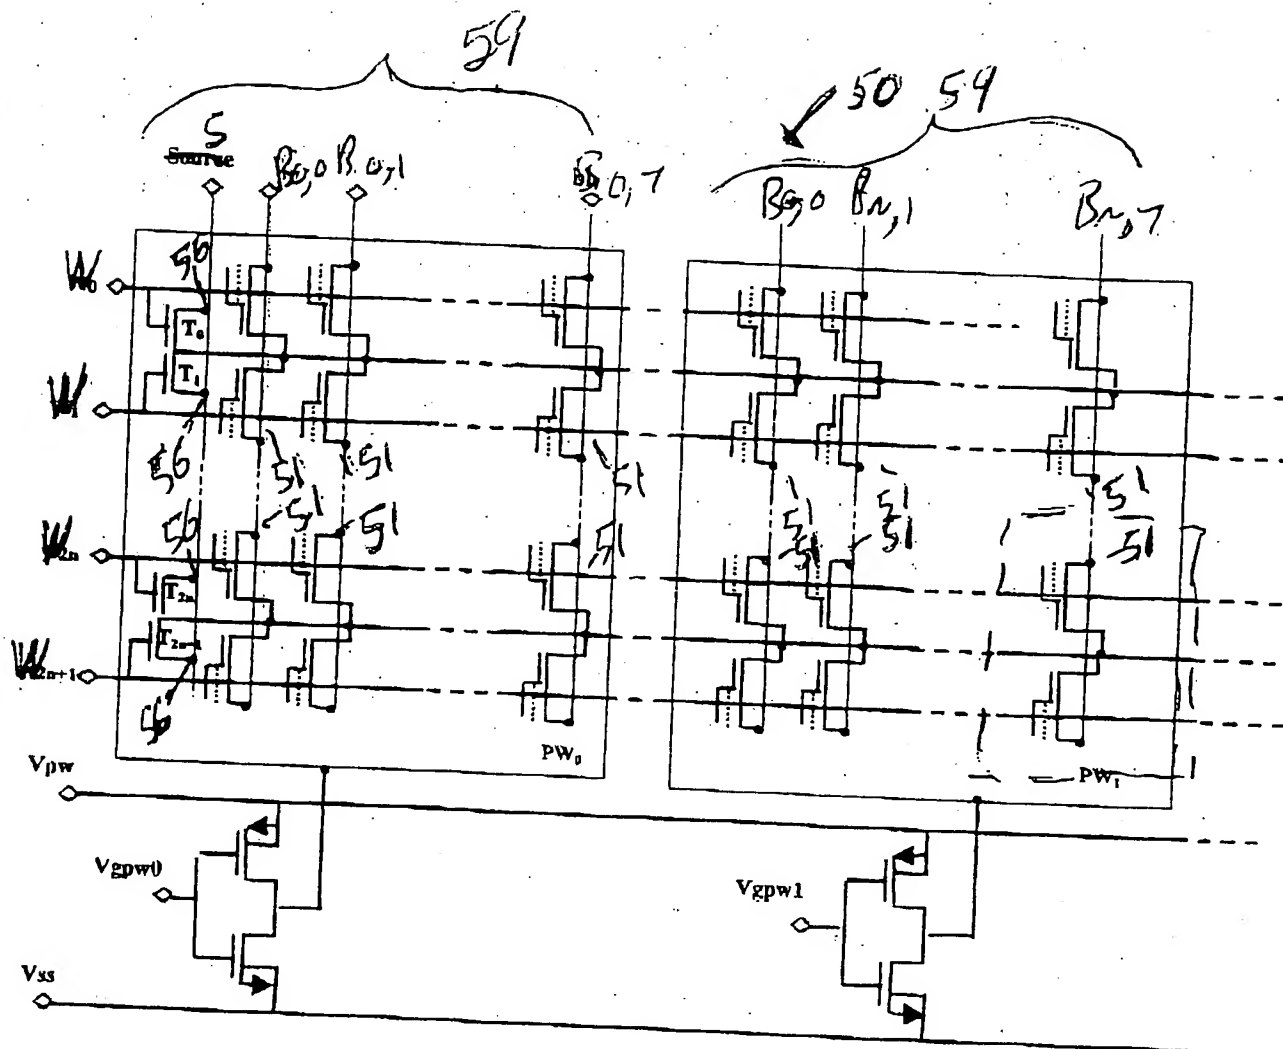 59
50 59
S
Source
B0,0 B0,1
0,7
B0,0 Bn,1
Bn,7
W0
56
T0
T1
W1
56
51 51 51 51 51 51
56
51 51 51 51 51 51
W2n
T2n
T2n+1
W2n+1
56
PW0
PW1
Vpw
Vgpw0
Vgpw1
Vss